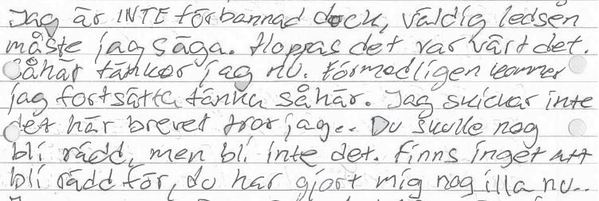 Jag är INTE förbannad dock, väldig ledsen
måste jag säga. Hoppas det var värt det.
Såhär tänker jag nu. Förmodligen kommer
jag fortsätta tänka såhär. Jag skickar inte
det här brevet tror jag.. Du skulle nog
bli rädd, men bli inte det. Finns inget att
bli rädd för, du har gjort mig nog illa nu..